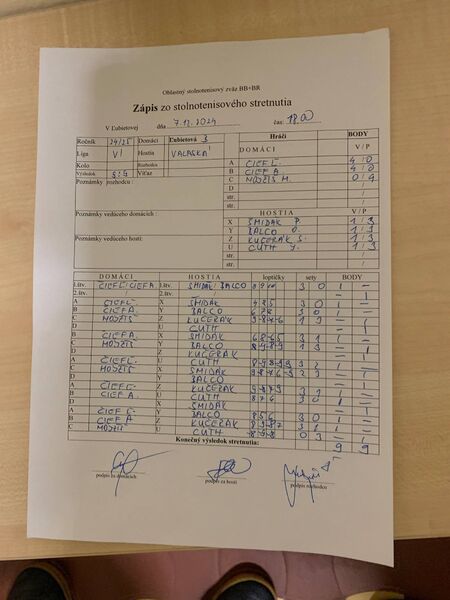 Oblastný stolnotenisový zväz BB+BR
Zápis zo stolnotenisového stretnutia
V Ľubietovej dňa 7.12.2024 čas: 17.00
Ročník 24/25 Domáci Ľubietová 3
Liga VI Hostia VALASKÁ
Kolo Rozhodca
Výsledok 9:9 Víťaz
Poznámky rozhodcu :
Poznámky vedúceho domácich :
Poznámky vedúceho hostí:
Hráči BODY
DOMÁCI V / P
A CIEF Ľ. 4 / 0
B CIEF A. 4 / 0
C MOJŽIŠ M. 0 / 4
D
str. /
str. /
HOSTIA V / P
X ŠMIDÁK P. 1 / 3
Y BALCO 1 / 3
Z KUČERÁK S. 1 / 3
U CUTH 1 / 3
str.
str.
DOMÁCI HOSTIA loptičky sety BODY
1.štv. CIEF Ľ. CIEF A ŠMIDÁK BALCO 3 0 1 -
2.štv. 2.štv. - 1
A CIEF Ľ. X ŠMIDÁK 3 0 1 -
B CIEF A. Y BALCO 6 7 8 3 0 1 -
C MOJŽIŠ Z KUČERÁK 1 3 - 1
D U CUTH - 1
B CIEF A. X ŠMIDÁK 3 1 1 -
C MOJŽIŠ Y BALCO 1 3 - 1
D Z KUČERÁK - 1
A CIEF Ľ. U CUTH 1 -
C MOJŽIŠ X ŠMIDÁK 2 3 - 1
D Y BALCO - 1
A CIEF Ľ. Z KUČERÁK 3 1 1 -
B CIEF A. U CUTH 8 7 6 3 0 1 -
D X ŠMIDÁK - 1
A CIEF Ľ. Y BALCO 8 5 6 3 0 1 -
B CIEF A Z KUČERÁK 3 1 1 -
C MOJŽIŠ U CUTH -8 -9 -8 0 3 - 1
Konečný výsledok stretnutia: 9 9
podpis za domácich podpis za hostí podpis rozhodcu